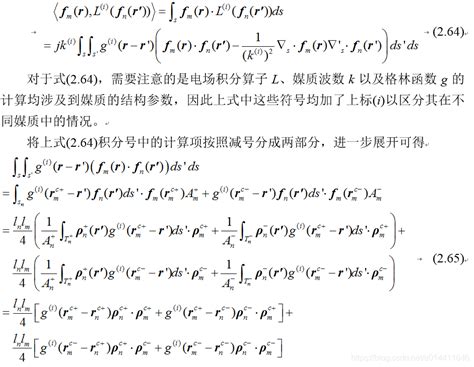 ⟨f_m(r), L^(i)(f_n(r'))⟩ = ∫_s f_m(r)·L^(i)(f_n(r'))ds
= jk^(i)∫_s∫_s' g^(i)(r − r')( f_m(r)·f_n(r') − 1/(k^(i))² ∇_s·f_m(r)∇'_s·f_n(r') ) ds'ds (2.64)
对于式(2.64)，需要注意的是电场积分算子 L、媒质波数 k 以及格林函数 g 的
计算均涉及到媒质的结构参数，因此上式中这些符号均加了上标(i)以区分其在不
同媒质中的情况。
将上式(2.64)积分号中的计算项按照减号分成两部分，进一步展开可得
∫_s∫_s' g^(i)(r − r')(f_m(r)·f_n(r'))ds'ds
= ∫_{s_n} g^(i)(r_m^{c+} − r')f_n(r')ds'·f_m(r_m^{c+})A_m^+ + ∫_{s_n} g^(i)(r_m^{c−} − r')f_n(r')ds'·f_m(r_m^{c−})A_m^−
= l_n l_m/4 ( 1/A_n^+ ∫_{T_n^+} ρ_n^+(r')g^(i)(r_m^{c+} − r')ds'·ρ_m^{c+} + 1/A_n^− ∫_{T_n^−} ρ_n^−(r')g^(i)(r_m^{c+} − r')ds'·ρ_m^{c+} ) +
l_n l_m/4 ( 1/A_n^+ ∫_{T_n^+} ρ_n^+(r')g^(i)(r_m^{c−} − r')ds'·ρ_m^{c−} + 1/A_n^− ∫_{T_n^−} ρ_n^−(r')g^(i)(r_m^{c−} − r')ds'·ρ_m^{c−} ) (2.65)
= l_n l_m/4 [ g^(i)(r_m^{c+} − r_n^{c+})ρ_n^{c+}·ρ_m^{c+} + g^(i)(r_m^{c+} − r_n^{c−})ρ_n^{c−}·ρ_m^{c+} ] +
l_n l_m/4 [ g^(i)(r_m^{c−} − r_n^{c+})ρ_n^{c+}·ρ_m^{c−} + g^(i)(r_m^{c−} − r_n^{c−})ρ_n^{c−}·ρ_m^{c−} ]